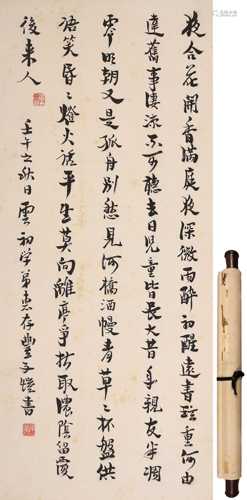 夜合花開香滿庭夜深微雨醉初醒遠書珍重何由
達舊事淒涼不可聽去日兒童皆長大昔年親友半凋
零明朝又是孤舟別愁見河橋酒幔青草々杯盤供
語笑昏々燈火話平生莫向離亭爭折取濃陰留覆
後來人
壬午之秋日雲初學弟惠存豐子愷書